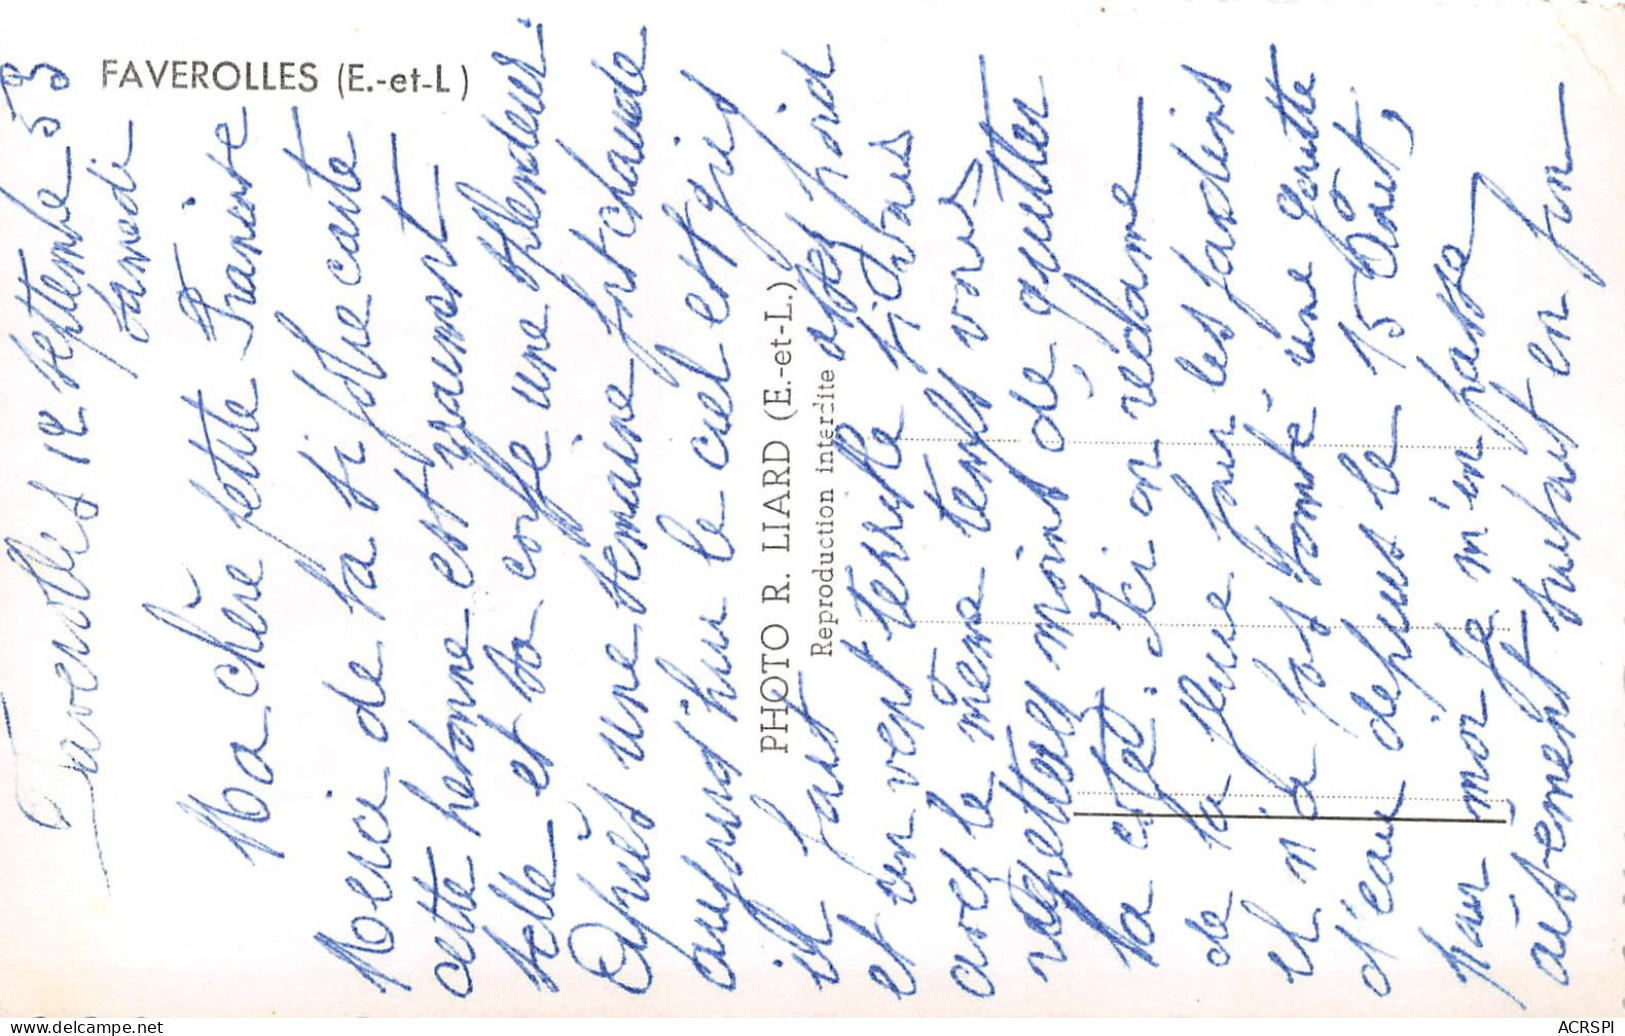 FAVEROLLES (E.-et-L)
Faverolles 12 septembre 53
samedi
Ma chère petite Francine
Merci de ta si jolie carte
cette bretonne est vraiment
belle et sa coiffe une splendeur.
Après une semaine fort chaude
aujourd'hui le ciel est gris
il fait assez froid
et un vent terrible. Si vous
avez le même temps vous
regrettez moins de quitter
la côte. Ici on réclame
de la pluie pour les jardins
et n'a pas tombé une goutte
d'eau depuis le 15 Août,
pour moi je m'en passe
aisément surtout en fin
PHOTO R. LIARD (E.-et-L.)
Reproduction interdite
ACRSPI